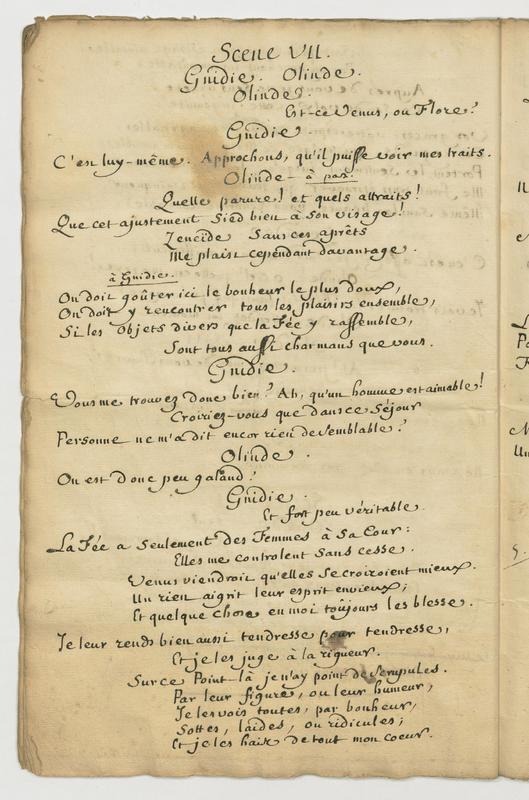 Scene VII.
Gnidie. Olinde.
Olinde.
Est-ce Venus, ou Flore?
Gnidie.
C'est luy-même. Approchons, qu'il puisse voir mes traits.
Olinde - à part.
Quelle parure! et quels attraits!
Que cet ajustement sied bien à son visage!
Zeneïde sans ces aprêts
Me plaist cependant davantage.
à Gnidie.
On doit goûter ici le bonheur le plus doux,
On doit y rencontrer tous les plaisirs ensemble,
Si les objets divers que la Fée y rassemble,
Sont tous aussi charmans que vous.
Gnidie.
Vous me trouvez donc bien? Ah, qu'un homme est aimable!
Croiriez-vous que dans ce séjour
Personne ne m'a dit encor rien de semblable?
Olinde.
On est donc peu galand?
Gnidie.
Et fort peu véritable.
La Fée a seulement des Femmes à sa Cour:
Elles me controlent sans cesse.
Venus viendroit qu'elles se croiroient mieux.
Un rien aigrit leur esprit envieux;
Et quelque chose en moi toûjours les blesse.
Je leur rends bien aussi tendresse pour tendresse,
Et je les juge à la rigueur.
Sur ce Point-là je n'ay point de scrupules.
Par leur figure, ou leur humeur,
Je les vois toutes, par bonheur,
Sottes, laides, ou ridicules;
Et je les hais de tout mon coeur.